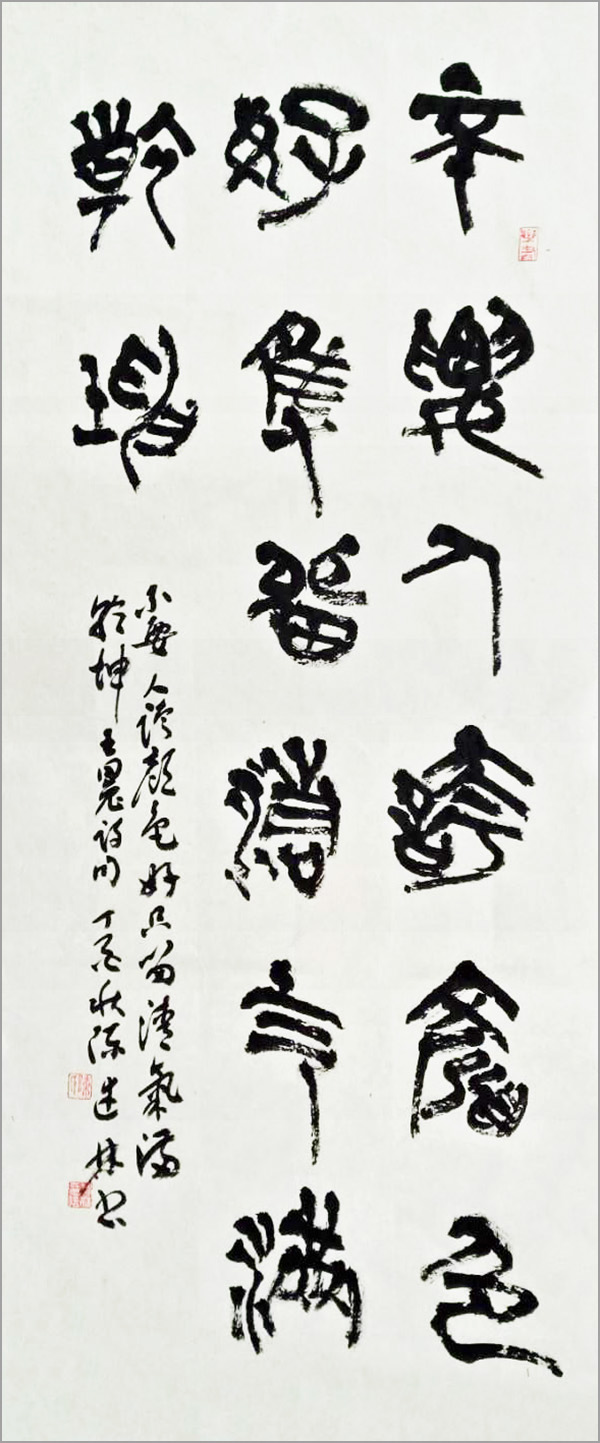 不要人誇顏色
好隻留清气滿
乾坤
不要人誇顏色好只留清氣滿
乾坤 王冕詩句 丁 秋陈 林书